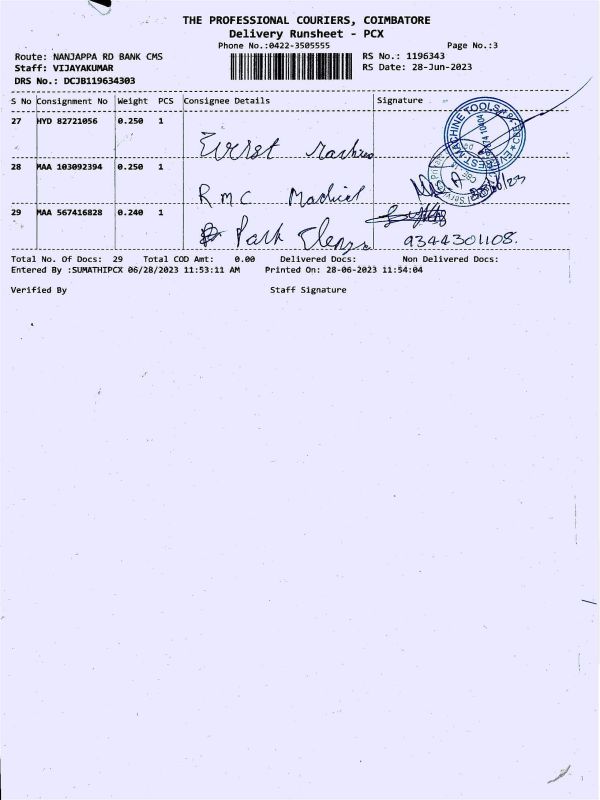 THE PROFESSIONAL COURIERS, COIMBATORE
Delivery Runsheet - PCX
Phone No.:0422-3505555 Page No.:3
Route: NANJAPPA RD BANK CMS RS No.: 1196343
Staff: VIJAYAKUMAR RS Date: 28-Jun-2023
DRS No.: DCJB119634303
S No Consignment No Weight PCS Consignee Details Signature
27 HYD 82721056 0.250 1
EVEREST MACHINE TOOLS
28 MAA 103092394 0.250 1
RMC
29 MAA 567416828 0.240 1
Park 9344301108.
Total No. Of Docs: 29 Total COD Amt: 0.00 Delivered Docs: Non Delivered Docs:
Entered By :SUMATHIPCX 06/28/2023 11:53:11 AM Printed On: 28-06-2023 11:54:04
Verified By Staff Signature